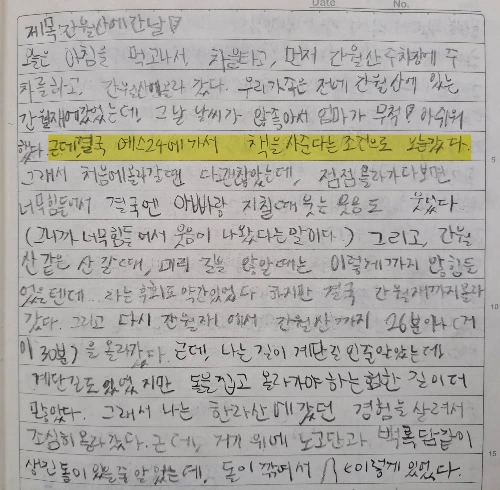 Date No.
제목: 간월산에 간 날
오늘은 아침을 먹고나서, 차를타고, 먼저 간월산 주차장에 주
차를 하고, 간월산에올라 갔다. 우리가족은 전에 간월산에 있는
간월재에갔었는데, 그날 날씨가 안좋아서 엄마가 무척 아쉬워
했다. 근데, 결국 예스24에 가서 책을 사준다는 조건으로 오늘갔다.
그래서 처음에올라갈땐 다괜찮았는데, 점점올라가다보면
너무힘들어서 결국엔 아빠랑 지칠때웃는웃음도 웃었다
(그니까 너무힘들어서 웃음이 나왔다는말이다.) 그리고, 간월
산같은 산 갈때, 미리 길을 않알때는 이렇게까지 않힘들
었을텐데... 라는 후회도 약간있었다 하지만 결국 간월재까지올라
갔다. 그리고 다시 간월재 에서 간월산까지 26분이나 (거
의 30분?)을 올라갔다. 근데, 나는 길이 계단길 인줄알았는데,
계단길도있었지만 돌을 짚고 올라가야 하는 험한 길이 더
많았다. 그래서 나는 한라산 에 갔던 경험을 살려서
조심히올라갔다. 근 데, 거기 위에 노고단과 백록담같이
생긴돌이있을줄 알았는데, 돌이 깎여서 ←이렇게 있었다.
5
10
15